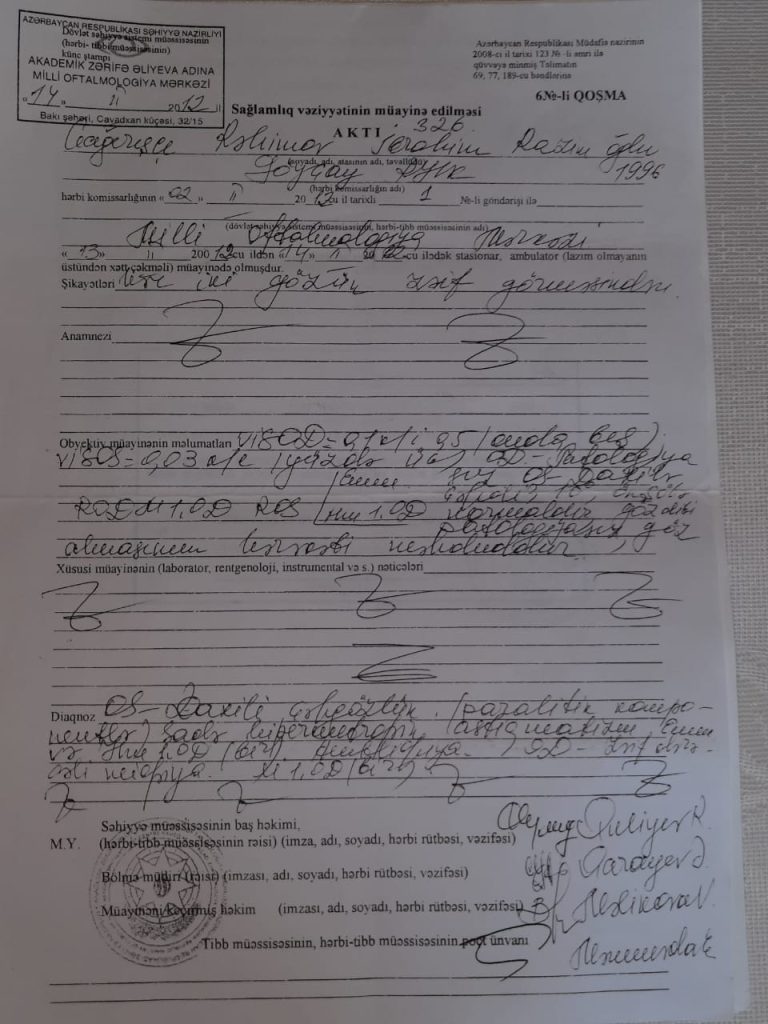 AZƏRBAYCAN RESPUBLİKASI SƏHİYYƏ NAZİRLİYİ
Dövlət səhiyyə sistemi müəssisəsinin
(hərbi- tibb müəssisəsinin)
künc ştampı
AKADEMİK ZƏRİFƏ ƏLİYEVA ADINA
MİLLİ OFTALMOLOGİYA MƏRKƏZİ
«14» II 2012 il
Bakı şəhəri, Cavadxan küçəsi, 32/15
Azərbaycan Respublikası Müdafiə nazirinin
2008-ci il tarixi 123 № -li əmri ilə
qüvvəyə minmiş Təlimatın
69, 77, 189-cu bəndlərinə
6№-li QOŞMA
Sağlamlıq vəziyyətinin müayinə edilməsi
AKTI 326
Çağırışçı Rəhimov İbrahim Razim oğlu
(soyadı, adı, atasının adı, təvəllüdü)
Göyçay RHK 1996
(hərbi komissarlığın adı)
hərbi komissarlığının «02» II 2012 cu il tarixli 1 №-li göndərişi ilə
(dövlət səhiyyə sistemi müəssisəsi, hərbi-tibb müəssisəsinin adı)
Milli Oftalmologiya Mərkəzi
«13» II 20012cu ildən «14» II 2012cu ilədək stasionar, ambulator (lazım olmayanın
üstündən xətt çəkməli) müayinədə olmuşdur.
Şikayətləri hər iki gözün zəif görməsindən
Anamnezi
Obyektiv müayinənin məlumatları VISOD=0,1 k/i 0,5
VISOS=0,03 OD- Patologiya
OS- Daxili
ROD M 1,0D ROS Hm 1,0D normaldır göz dibi
patologiyasız göz
almasının hərəkəti məhduddur
Xüsusi müayinənin (laborator, rentgenoloji, instrumental və s.) nəticələri
Diaqnoz OS- Daxili çəpgözlük (paralitik kompo-
nentlə) Sadə hipermetropik astiqmatizm
və Hm 1,0D (bir). Ambliopiya. OD- zəif dərə-
cəli miopiya. M 1,0D (bir).
Səhiyyə müəssisəsinin baş həkimi,
M.Y. (hərbi-tibb müəssisəsinin rəisi) (imza, adı, soyadı, hərbi rütbəsi, vəzifəsi)
Quliyev R.
Bölmə müdiri (rəisi) (imzası, adı, soyadı, hərbi rütbəsi, vəzifəsi)
Qarayev
Müayinəni keçirmiş həkim (imzası, adı, soyadı, hərbi rütbəsi, vəzifəsi)
Məlikova V.
Tibb müəssisəsinin, hərbi-tibb müəssisəsinin poçt ünvanı